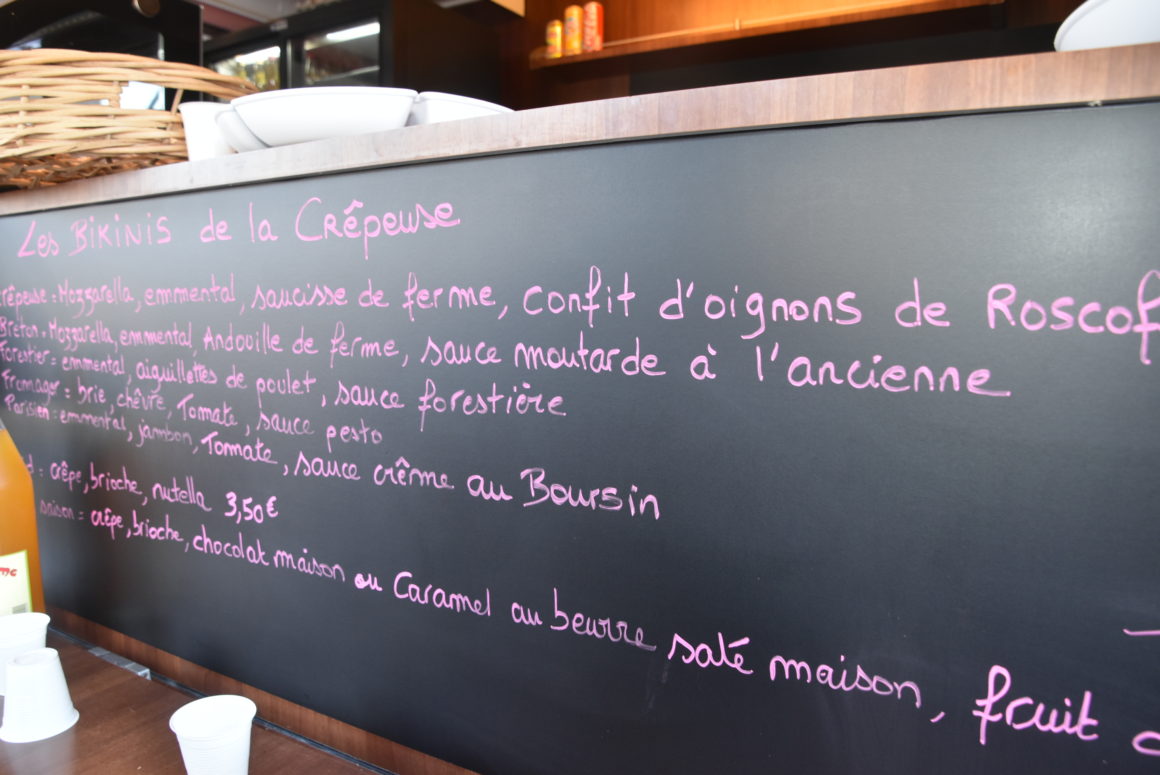 Les BIKINIS de la CRêpeuse
crêpeuse = Mozzarella, emmental, saucisse de ferme, confit d'oignons de Roscof
Breton = Mozzarella, emmental, Andouille de ferme, sauce moutarde à l'ancienne
Forestier = emmental, aiguillettes de poulet, sauce forestière
Fromager = brie, chèvre, Tomate, sauce pesto
Parisien = emmental, jambon, Tomate, sauce crême au Boursin
: crêpe, brioche, nutella 3,50€
saison = crêpe, brioche, chocolat maison ou Caramel au beurre salé maison, fruit